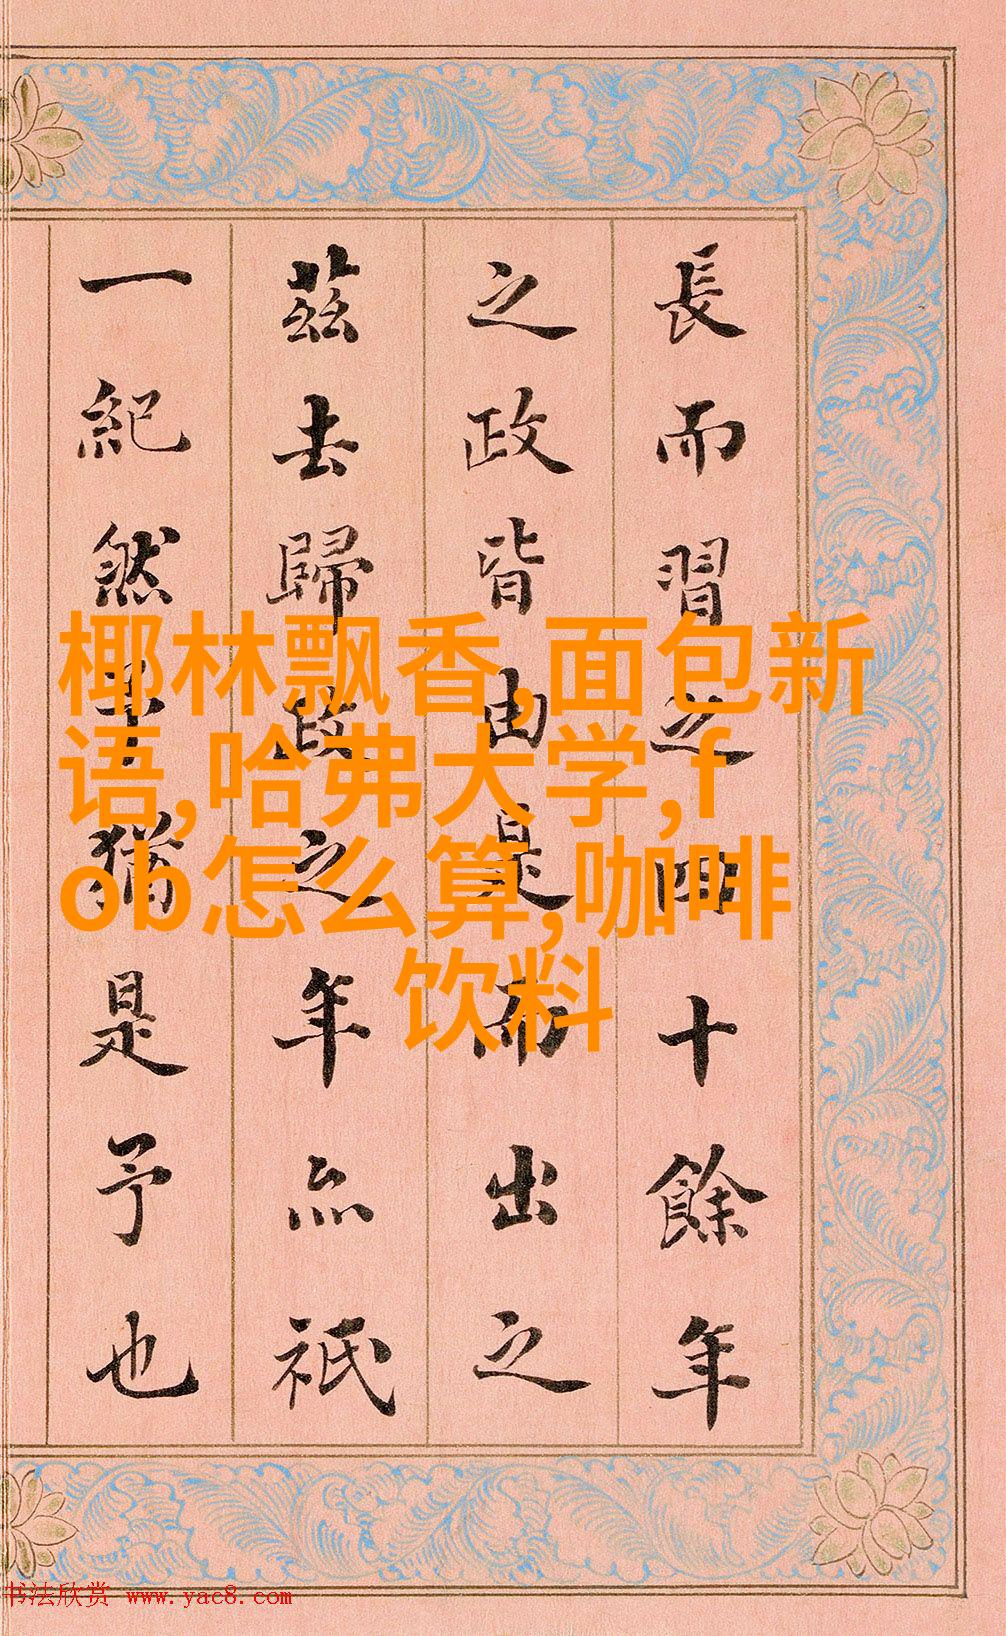 長而習之四十餘年
之政皆由是而出之
茲去歸政之年亦祇
一紀然耳猶是予也
椰林飘香,面包新
语,哈弗大学,f
ob怎么算,咖啡
饮料
书法欣赏 www.yac8.com